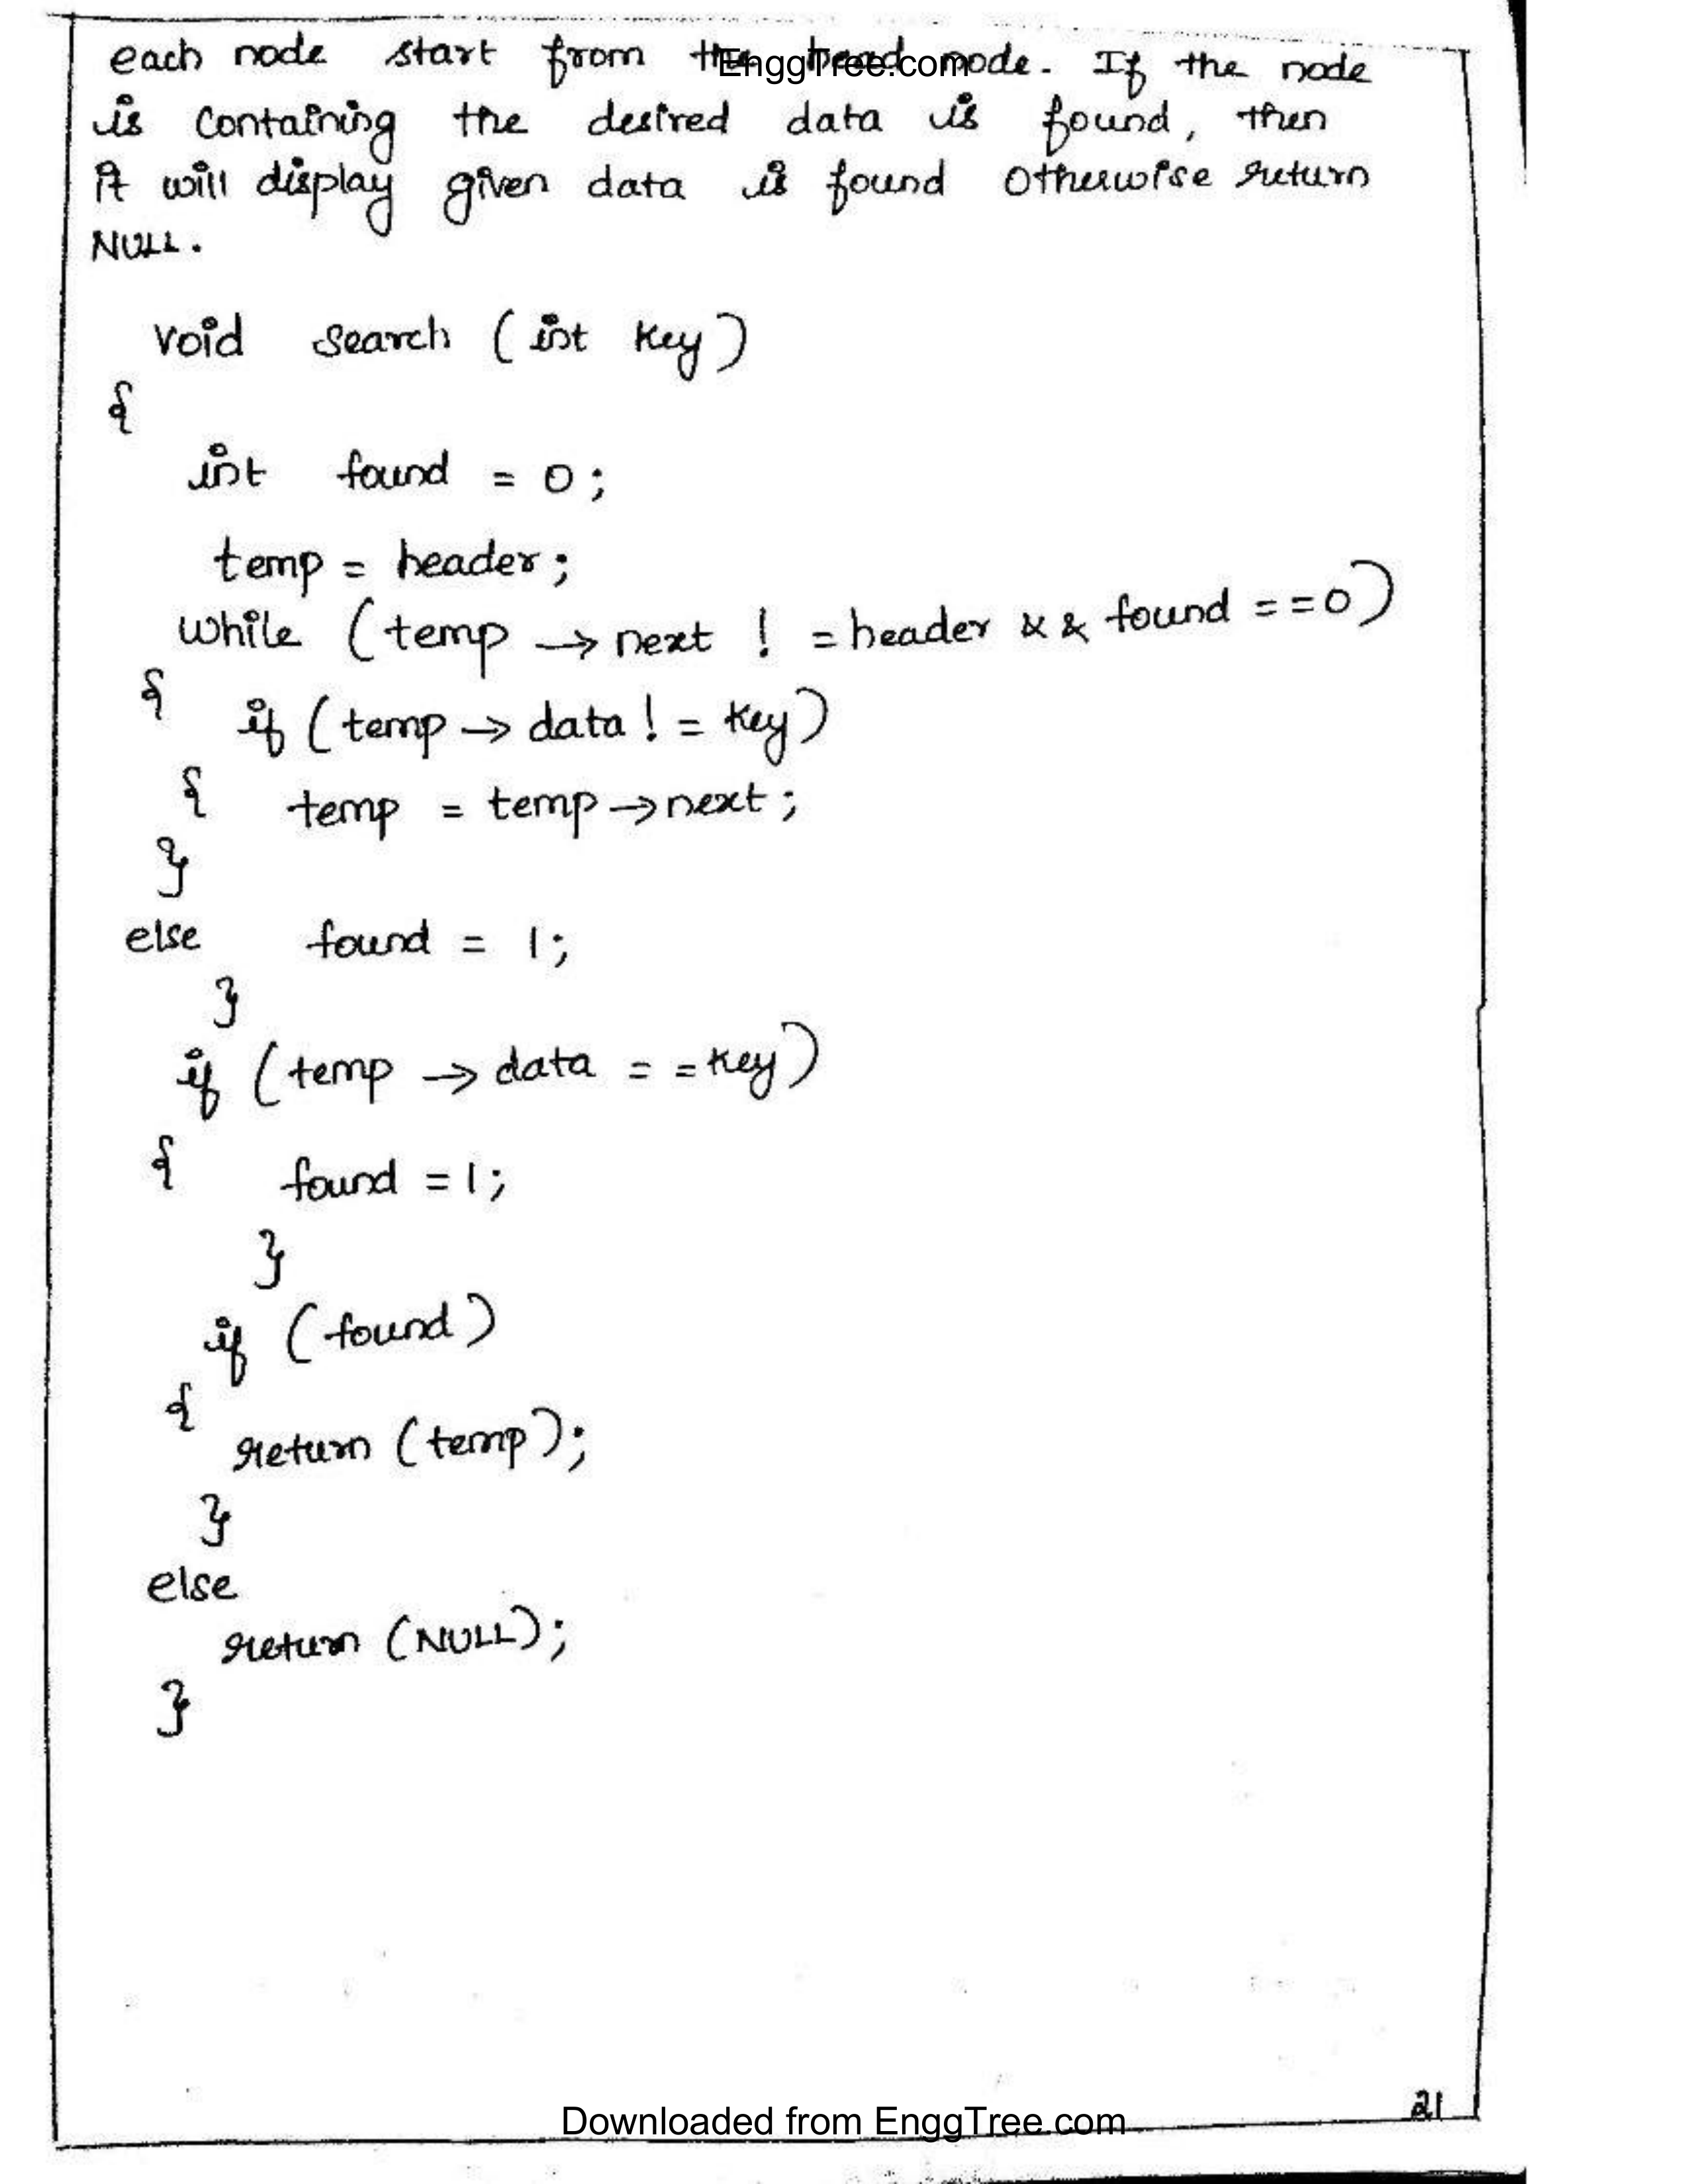 EnggTree.com
each node start from the head node. If the node
is containing the desired data is found, then
it will display given data is found otherwise return
NULL.
void search (int key)
{
int found = 0;
temp = header;
while (temp → next ! = header && found = = 0)
{ if (temp → data ! = key)
{ temp = temp → next;
}
else found = 1;
}
if (temp → data = = key)
{ found = 1;
}
if (found)
{
return (temp);
}
else
return (NULL);
}
21
Downloaded from EnggTree.com